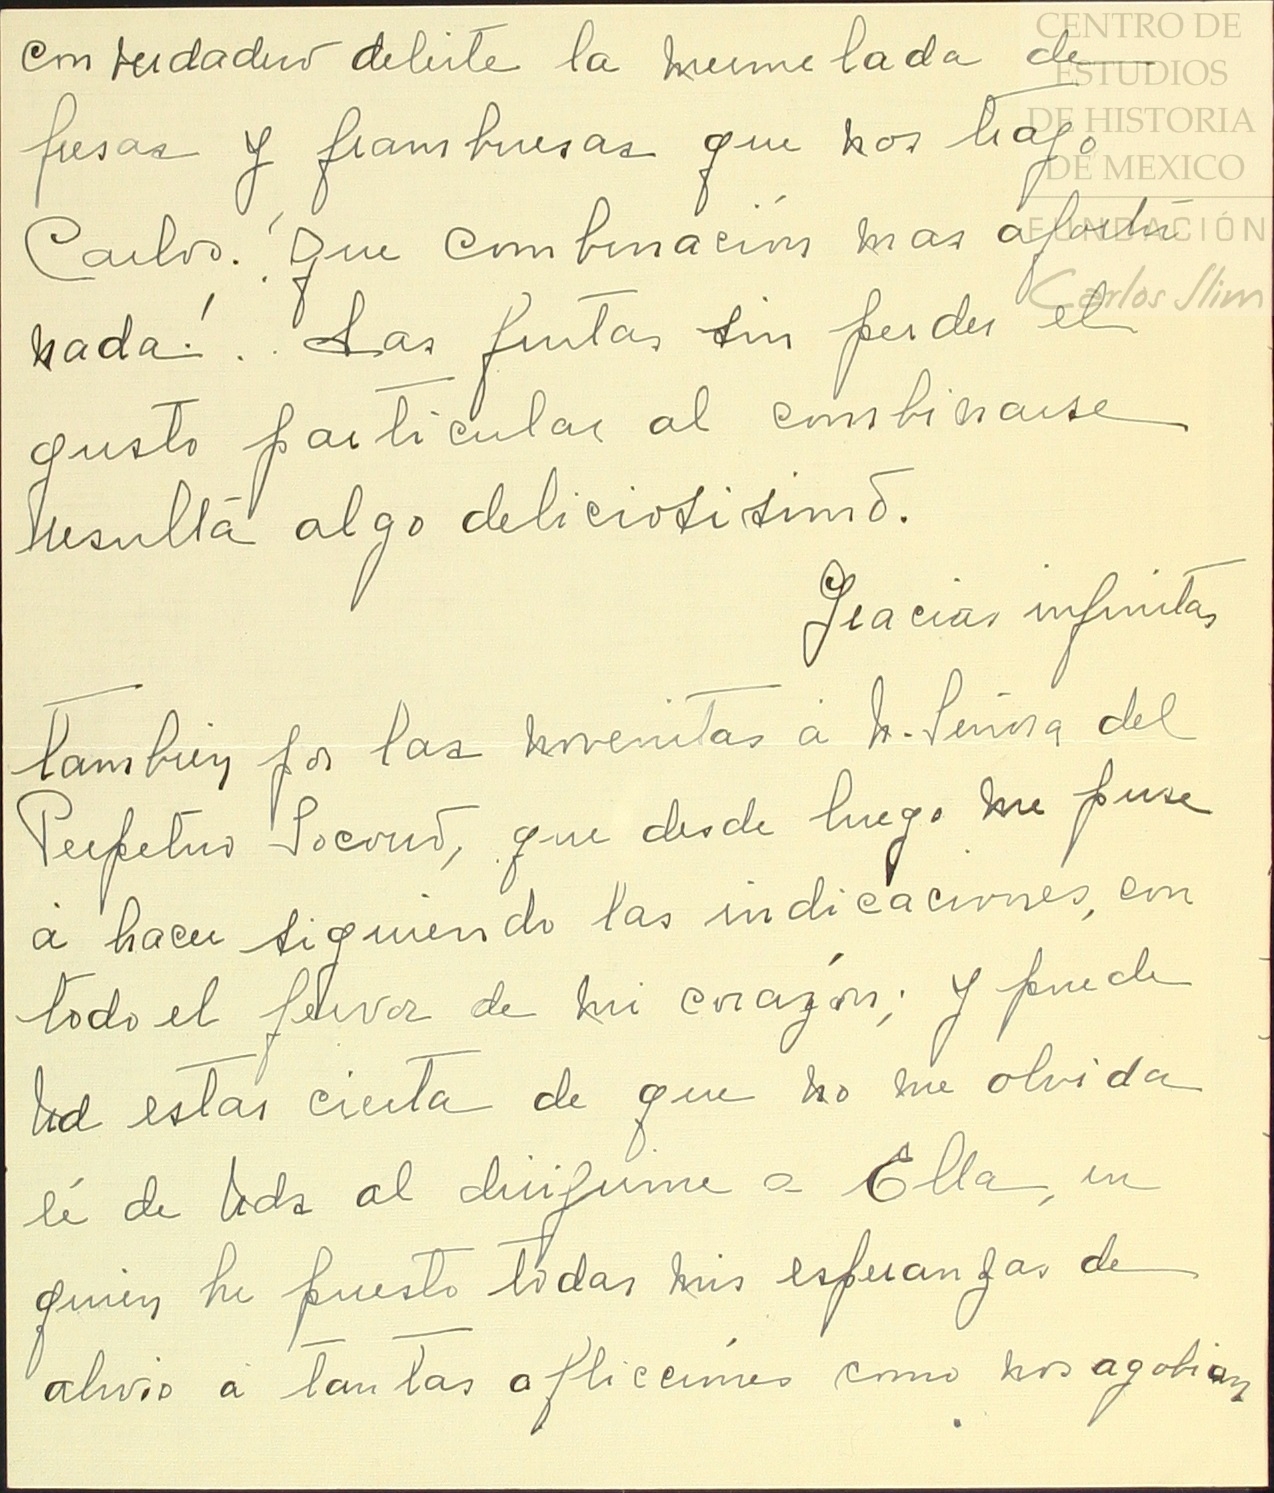 CENTRO DE
ESTUDIOS
DE HISTORIA
DE MEXICO
FUNDACIÓN
Carlos Slim
con verdadero deleite la mermelada de
fresas y frambuesas que nos trajo
Carlos. ¡Que combinación mas afortu
nada! . . Las frutas sin perder el
gusto particular al combinarse
resulta algo deliciosisimo.
Gracias infinitas
tambien por las novenitas á N. Señora del
Perpetuo Socorro, que desde luego me puse
á hacer siguiendo las indicaciones, con
todo el fervor de mi corazón; y puede
Ud estar cierta de que no me olvida
ré de Uds al dirigirme a Ella, en
quien he puesto todas mis esperanzas de
alivio á tantas aflicciónes como nos agobian